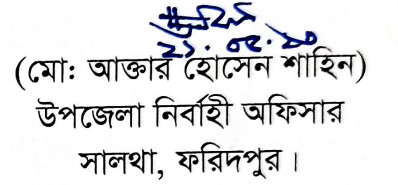 ২১.০৫.২০
(মো: আক্তার হোসেন শাহিন)
উপজেলা নির্বাহী অফিসার
সালথা, ফরিদপুর।